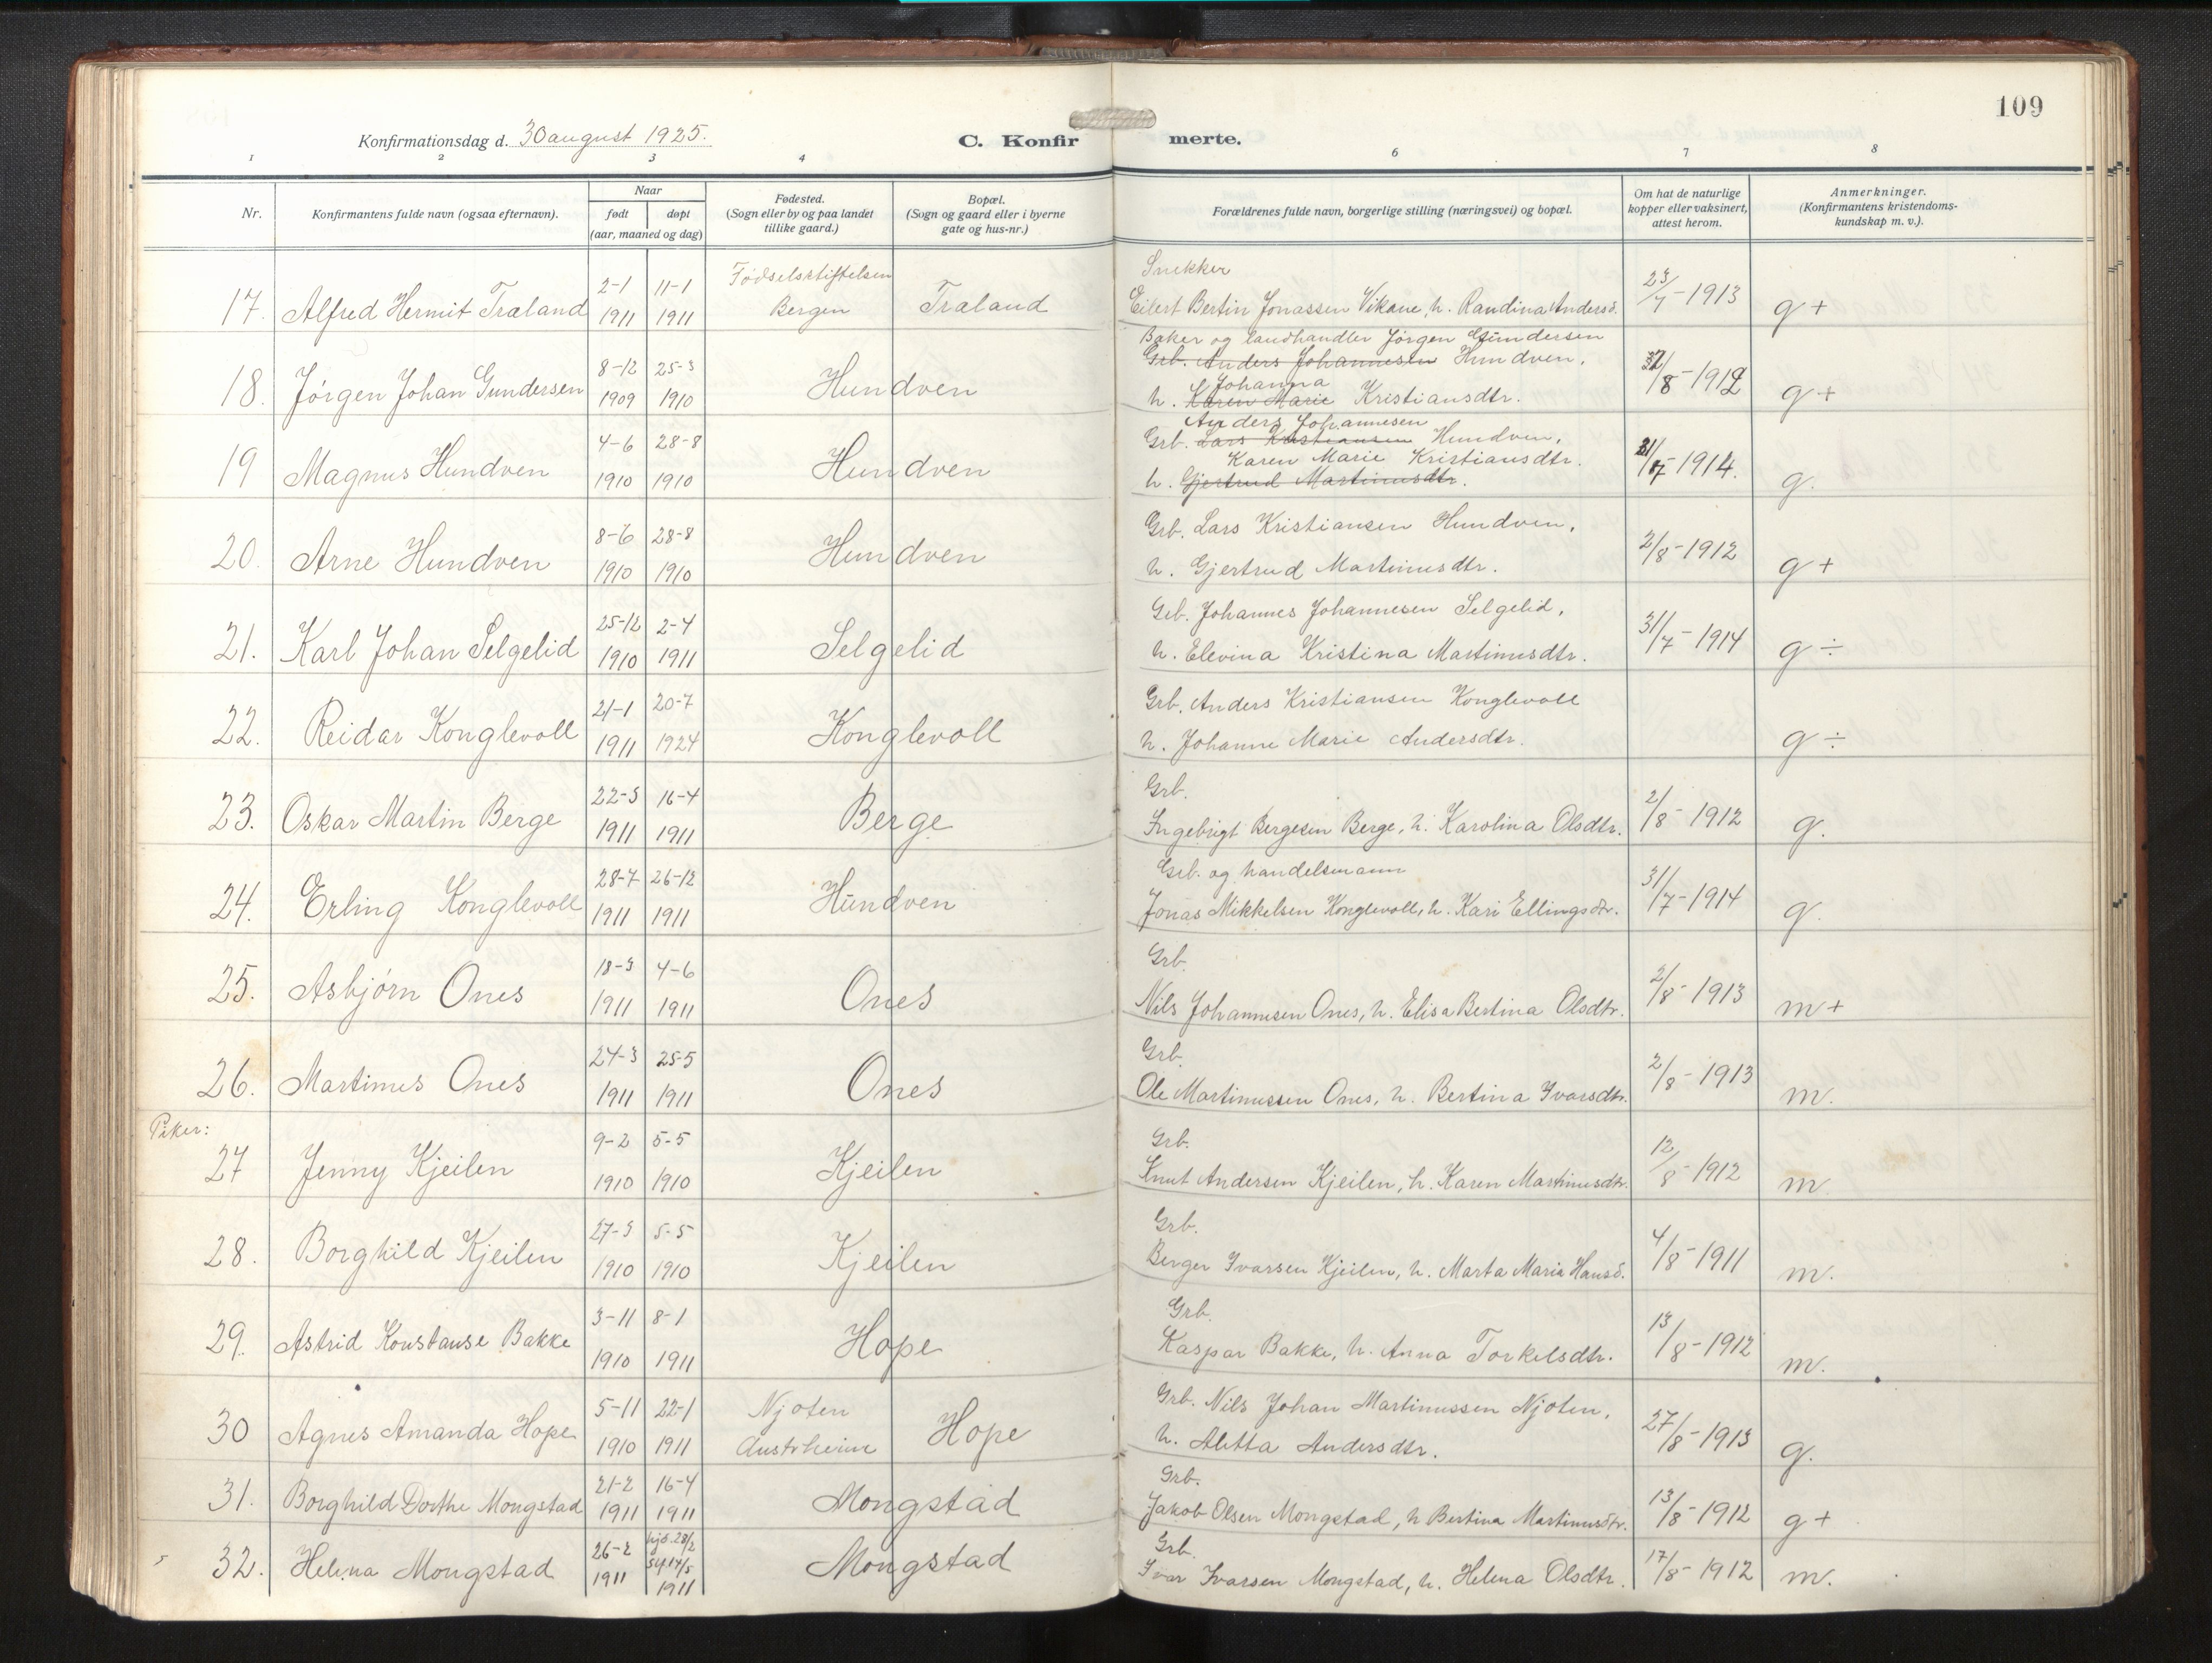 109
Konfirmationsdag d. 30 august 1925.
C. Konfirmerte.
1 2 3 4 6 7 8
Nr.
Konfirmantens fulde navn (ogsaa efternavn).
Naar
født døpt
(aar, maaned og dag)
Fødested.
(Sogn eller by og paa landet
tillike gaard.)
Bopæl.
(Sogn og gaard eller i byerne
gate og hus-nr.)
Forældrenes fulde navn, borgerlige stilling (næringsvei) og bopæl.
Om hat de naturlige
kopper eller vaksinert,
attest herom.
Anmerkninger.
(Konfirmantens kristendoms-
kundskap m. v.).
2-1 11-1 Fødselsstiftelsen Snekker
17. Alfred Hermit Træland 1911 1911 Bergen Træland Eilert Bertin Jonassen Vikane, h. Randina Andersd. 23/7-1913 g +
Baker og landhandler Jørgen Gundersen
8-12 25-3 Grb. Anders Johannesen Hundven,
Johanna
18. Jørgen Johan Gundersen 1909 1910 Hundven h. Karen Marie Kristiansdtr. /8-1912 g +
Anders Johannesen
4-6 28-8 Grb. Lars Kristiansen Hundven,
Karen Marie Kristiansdtr.
19 Magnus Hundven 1910 1910 Hundven h. Gjertrud Martinusdtr. 31/7-1914. g.
8-6 28-8 Grb. Lars Kristiansen Hundven,
20. Arne Hundven 1910 1910 Hundven h. Gjertrud Martinusdtr. 2/8-1912 g +
25-12 2-4 Grb. Johannes Johannesen Selgelid,
21. Karl Johan Selgelid 1910 1911 Selgelid h. Elevina Kristina Martinusdtr. 31/7-1914 g ÷
21-1 20-7 Grb. Anders Kristiansen Konglevoll
22. Reidar Konglevoll 1911 1924 Konglevoll h. Johanne Marie Andersdtr. g ÷
22-3 16-4 Grb.
23. Oskar Martin Berge 1911 1911 Berge Ingebrigt Bergesen Berge, h. Karolina Olsdtr. 2/8-1912 g.
28-7 26-12 Grb. og handelsmann
24. Erling Konglevoll 1911 1911 Hundven Jonas Mikkelsen Konglevoll, h. Kari Ellingsdtr. 31/7-1914 g.
18-3 4-6 Grb.
25. Asbjørn Ones 1911 1911 Ones Nils Johannesen Ones, h. Elisa Bertina Olsdtr. 2/8-1913 m +
24-3 25-5 Grb.
26. Martinus Ones 1911 1911 Ones Ole Martinussen Ones, h. Bertina Ivarsdtr. 2/8-1913 m.
Piker:
9-2 5-5 Grb.
27 Jenny Kjeilen 1910 1910 Kjeilen Knut Andersen Kjeilen, h. Karen Martinusdtr. 12/8-1912 m
27-3 5-5 Grb.
28. Borghild Kjeilen 1910 1910 Kjeilen Berger Ivarsen Kjeilen, h. Marta Maria Hansd. 4/8-1911 m.
3-11 8-1 Grb.
29. Astrid Konstanse Bakke 1910 1911 Hope Kaspar Bakke, h. Anna Torkelsdtr. 13/8-1912 m.
5-11 22-1 Njøten Grb. Nils Johan Martinussen Njøten,
30 Agnes Amanda Hope 1910 1911 Austrheim Hope h. Aletta Andersdtr. 27/8-1913 g.
21-2 16-4 Grb.
31. Borghild Dorthe Mongstad 1911 1911 Mongstad Jakob Olsen Mongstad, h Bertina Martinusdtr. 13/8-1912 g +
26-2 hjd. 28/2 Grb.
32. Helena Mongstad 1911 St. 14/5 1911 Mongstad Ivar Ivarsen Mongstad, h. Helena Olsdtr. 17/8-1912 m.